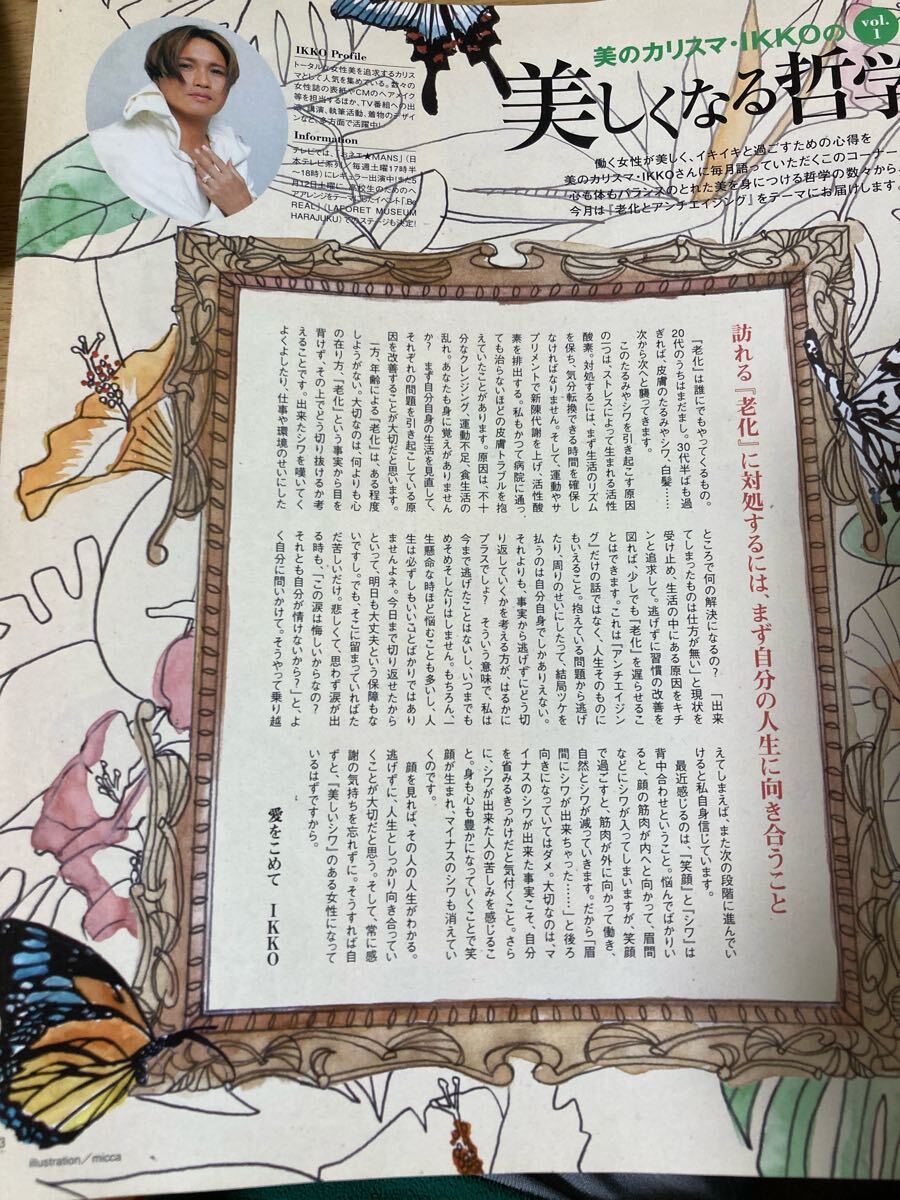 美のカリスマ・IKKOの
vol.
1
美しくなる哲学
働く女性が美しく、イキイキと過ごすための心得を
美のカリスマ・IKKOさんに毎月語っていただくこのコーナー
心も体もバランスのとれた美を身につける哲学の数々から、
今月は『老化とアンチエイジング』をテーマにお届けします。
IKKO Profile
トータルな女性美を追求するカリス
マとして人気を集めている。数々の
女性誌の表紙やCMのヘアメイク
等を担当するほか、TV番組への出
演、講演、執筆活動、着物のデザイ
ンなど、多方面で活躍中!
Information
テレビでは、『おネエ★MANS』(日
本テレビ系列/毎週土曜17時半
〜18時)にレギュラー出演中!また5
月12日土曜に、高校生のためのヘ
アアレンジをテーマにしたイベント『Be
REAL』(LAFORET MUSEUM
HARAJUKU)でのステージも決定!
訪れる『老化』に対処するには、まず自分の人生に向き合うこと
『老化』は誰にでもやってくるもの。
20代のうちはまだまし。30代半ばも過
ぎれば、皮膚のたるみやシワ、白髪……
次から次へと襲ってきます。
このたるみやシワを引き起こす原因
の一つは、ストレスによって生まれる活性
酸素。対処するには、まず生活のリズム
を保ち、気分転換できる時間を確保し
なければなりません。そして、運動やサ
プリメントで新陳代謝を上げ、活性酸
素を排出する。私もかつて病院に通っ
ても治らないほどの皮膚トラブルを抱
えていたことがあります。原因は、不十
分なクレンジング、運動不足、食生活の
乱れ。あなたも身に覚えがありません
か? まず自分自身の生活を見直して、
それぞれの問題を引き起こしている原
因を改善することが大切だと思います。
一方、年齢による『老化』は、ある程度
しようがない。大切なのは、何よりも心
の在り方、『老化』という事実から目を
背けず、その上でどう切り抜けるか考
えることです。出来たシワを嘆いてく
よくよしたり、仕事や環境のせいにした
ところで何の解決になるの? 「出来
てしまったものは仕方が無い」と現状を
受け止め、生活の中にある原因をキチ
ンと追求して。逃げずに習慣の改善を
図れば、少しでも『老化』を遅らせるこ
とはできます。これは『アンチエイジン
グ』だけの話ではなく、人生そのものに
もいえること。抱えている問題から逃げ
たり、周りのせいにしたって、結局ツケを
払うのは自分自身でしかありえない。
それよりも、事実から逃げずにどう切
り返していくかを考える方が、はるかに
プラスでしょ? そういう意味で、私は
今まで逃げたことはないし、いつまでも
めそめそしたりはしません。もちろん、一
生懸命な時ほど悩むことも多いし、人
生は必ずしもいいことばかりではあり
ませんよネ。今日まで切り返せたから
といって、明日も大丈夫という保障もな
いですし。でも、そこに留まっていればた
だ苦しいだけ。悲しくて、思わず涙が出
る時も、「この涙は悔しいからなの?
それとも自分が情けないから?」と、よ
く自分に問いかけて。そうやって乗り越
えてしまえば、また次の段階に進んでい
けると私自身信じています。
最近感じるのは、『笑顔』と『シワ』は
背中合わせということ。悩んでばかりい
ると、顔の筋肉が内へと向かって、眉間
などにシワが入ってしまいますが、笑顔
で過ごすと、筋肉が外に向かって働き、
自然とシワが減っていきます。だから「眉
間にシワが出来ちゃった……」と後ろ
向きになっていてはダメ。大切なのは、マ
イナスのシワが出来た事実こそ、自分
を省みるきっかけだと気付くこと。さら
に、シワが出来た人の苦しみを感じるこ
と。身も心も豊かになっていくことで笑
顔が生まれ、マイナスのシワも消えてい
くのです。
顔を見れば、その人の人生がわかる。
逃げずに、人生としっかり向き合ってい
くことが大切だと思う。そして、常に感
謝の気持ちを忘れずに。そうすれば自
ずと、『美しいシワ』のある女性になって
いるはずですから。
愛をこめて IKKO
3
illustration/micca